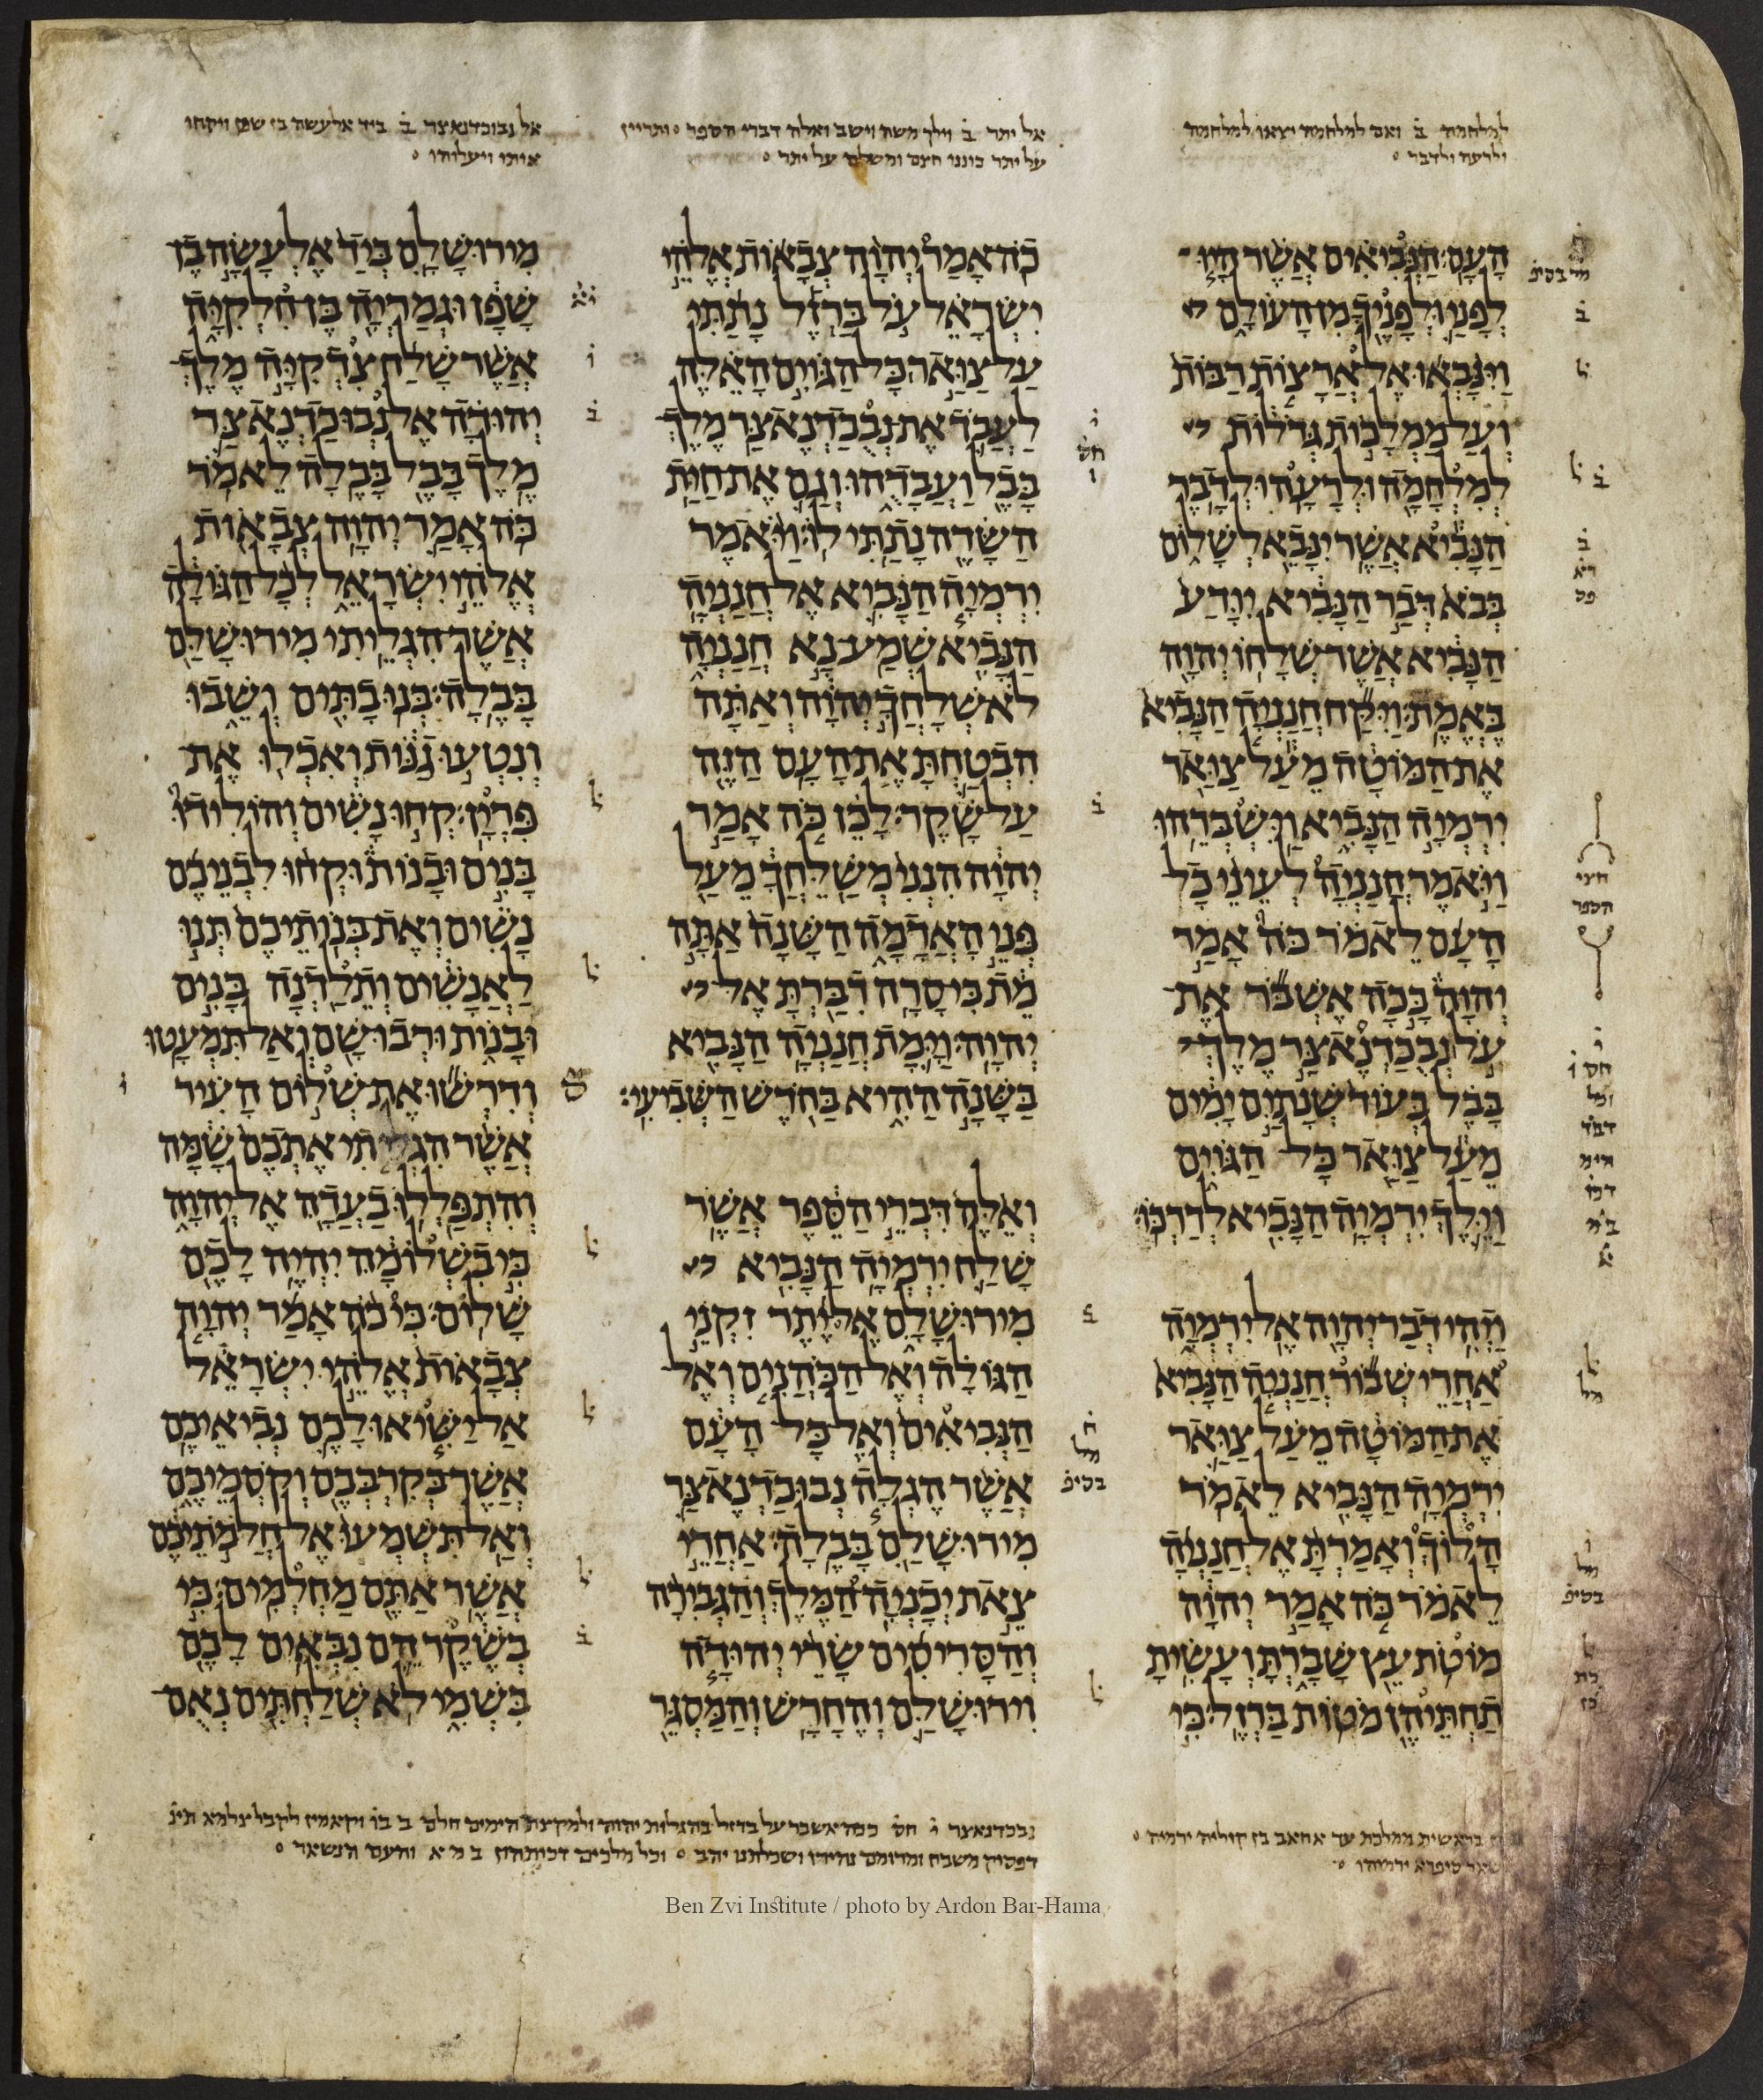 למלחמה ב̇ ואם למלחמה יצאו למלחמה
ולרעה ולדבר
העם הנביאים אשר היו
לפני ולפניך מן העולם
וינבאו אל ארצות רבות
ועל ממלכות גדלות
למלחמה ולרעה ולדבר
הנביא אשר ינבא לשלום
בבא דבר הנביא יודע
הנביא אשר שלחו יהוה
באמת ויקח חנניה הנביא
את המוטה מעל צואר
ירמיה הנביא וישברהו
ויאמר חנניה לעיני כל
העם לאמר כה אמר
יהוה ככה אשבר את
על נבכדנאצר מלך
בבל בעוד שנתים ימים
מעל צואר כל הגוים
וילך ירמיה הנביא לדרכו
ויהי דבר יהוה אל ירמיה
אחרי שבור חנניה הנביא
את המוטה מעל צואר
ירמיה הנביא לאמר
הלוך ואמרת אל חנניה
לאמר כה אמר יהוה
מוטת עץ שברת ועשית
תחתיהן מטות ברזל כי
אל יתר ב̇ וילך משה וישב ואלה דברי הספר ותריין
על יתר כוננו חצם ומשלם על יתר
כה אמר יהוה צבאות אלהי
ישראל על ברזל נתתי
על צואר כל הגוים האלה
לעבד את נבכדנאצר מלך
בבל ועבדהו וגם את חית
השדה נתתי לו ויאמר
ירמיה הנביא אל חנניה
הנביא שמע נא חנניה
לא שלחך יהוה ואתה
הבטחת את העם הזה
על שקר לכן כה אמר
יהוה הנני משלחך מעל
פני האדמה השנה אתה
מת כי סרה דברת אל
יהוה וימת חנניה הנביא
בשנה ההיא בחדש השביעי
ואלה דברי הספר אשר
שלח ירמיה הנביא
מירושלם אל יתר זקני
הגולה ואל הכהנים ואל
הנביאים ואל כל העם
אשר הגלה נבוכדנאצר
מירושלם בבלה אחרי
צאת יכניה המלך והגבירה
והסריסים שרי יהודה
וירושלם והחרש והמסגר
אל נבוכדנאצר ב̇ ביד אלעשה בן שפן ויקחו
אותו ויעלוהו
מירושלם ביד אלעשה בן
שפן וגמריה בן חלקיה
אשר שלח צדקיה מלך
יהודה אל נבוכדנאצר
מלך בבל בבלה לאמר
כה אמר יהוה צבאות
אלהי ישראל לכל הגולה
אשר הגליתי מירושלם
בבלה בנו בתים ושבו
ונטעו גנות ואכלו את
פרין קחו נשים והולידו
בנים ובנות וקחו לבניכם
נשים ואת בנותיכם תנו
לאנשים ותלדנה בנים
ובנות ורבו שם ואל תמעטו
ודרשו את שלום העיר
אשר הגליתי אתכם שמה
והתפללו בעדה אל יהוה
כי בשלומה יהיה לכם
שלום כי כה אמר יהוה
צבאות אלהי ישראל
אל ישיאו לכם נביאיכם
אשר בקרבכם וקסמיכם
ואל תשמעו אל חלמתיכם
אשר אתם מחלמים כי
בשקר הם נבאים לכם
בשמי לא שלחתים נאם
חצי
הספר
בראשית ממלכת עד אחאב בן קוליה ירמיה
שאר סיפרא ירמיהו
Ben Zvi Institute / photo by Ardon Bar-Hama